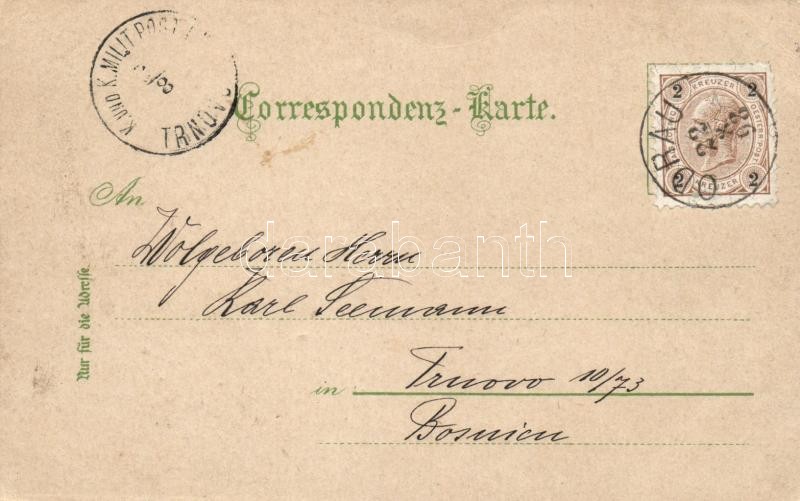 K. UND K. MILIT. POST
TRNOVO
Correspondenz-Karte.
2 KREUZER 2
OESTERR. POST
2 KREUZER 2
OBRAU
An
Wolgeboren Herrn
Karl Seemann
in Trnovo 10/73
Bosnien
Nur für die Adresse.
darabanth